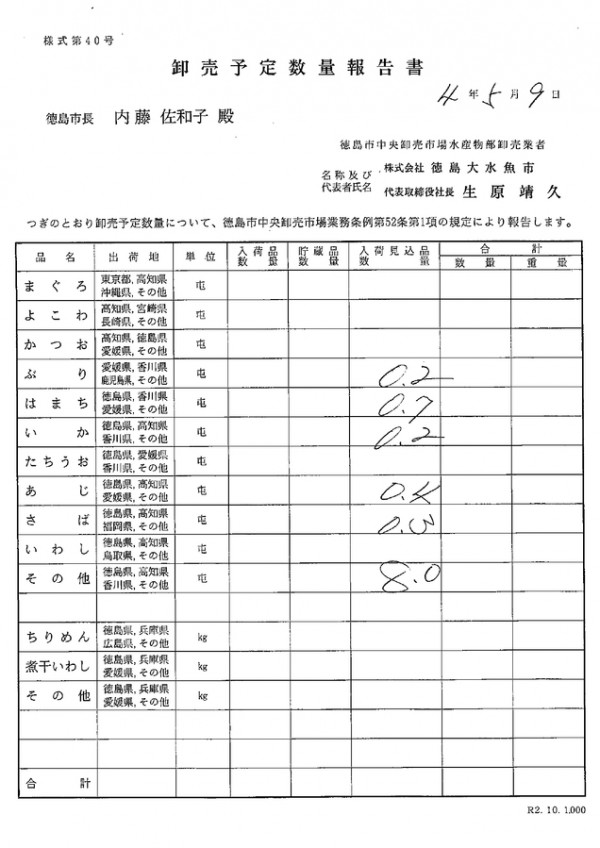 様式第40号
卸売予定数量報告書
4年5月9日
徳島市長 内藤 佐和子 殿
徳島市中央卸売市場水産物部卸売業者
名称及び 株式会社 徳島大水魚市
代表者氏名 代表取締役社長 生原靖久
つぎのとおり卸売予定数量について、徳島市中央卸売市場業務条例第52条第1項の規定により報告します。
品名 出荷地 単位 入荷品数量 貯蔵品数量 入荷見込品量 合計
数量 重量
まぐろ 東京都, 高知県 屯
沖縄県, その他
よこわ 高知県, 宮崎県 屯
長崎県, その他
かつお 高知県, 徳島県 屯
愛媛県, その他
ぶり 愛媛県, 香川県 屯 0.2
鹿児島県, その他
はまち 徳島県, 香川県 屯 0.7
愛媛県, その他
いか 徳島県, 高知県 屯 0.2
香川県, その他
たちうお 徳島県, 愛媛県 屯
香川県, その他
あじ 徳島県, 高知県 屯 0.4
愛媛県, その他
さば 徳島県, 高知県 屯 0.3
福岡県, その他
いわし 徳島県, 高知県 屯
鳥取県, その他
その他 徳島県, 高知県 屯 8.0
香川県, その他
ちりめん 徳島県, 兵庫県 kg
広島県, その他
煮干いわし 徳島県, 兵庫県 kg
愛媛県, その他
その他 徳島県, 兵庫県 kg
愛媛県, その他
合計
R2. 10. 1,000